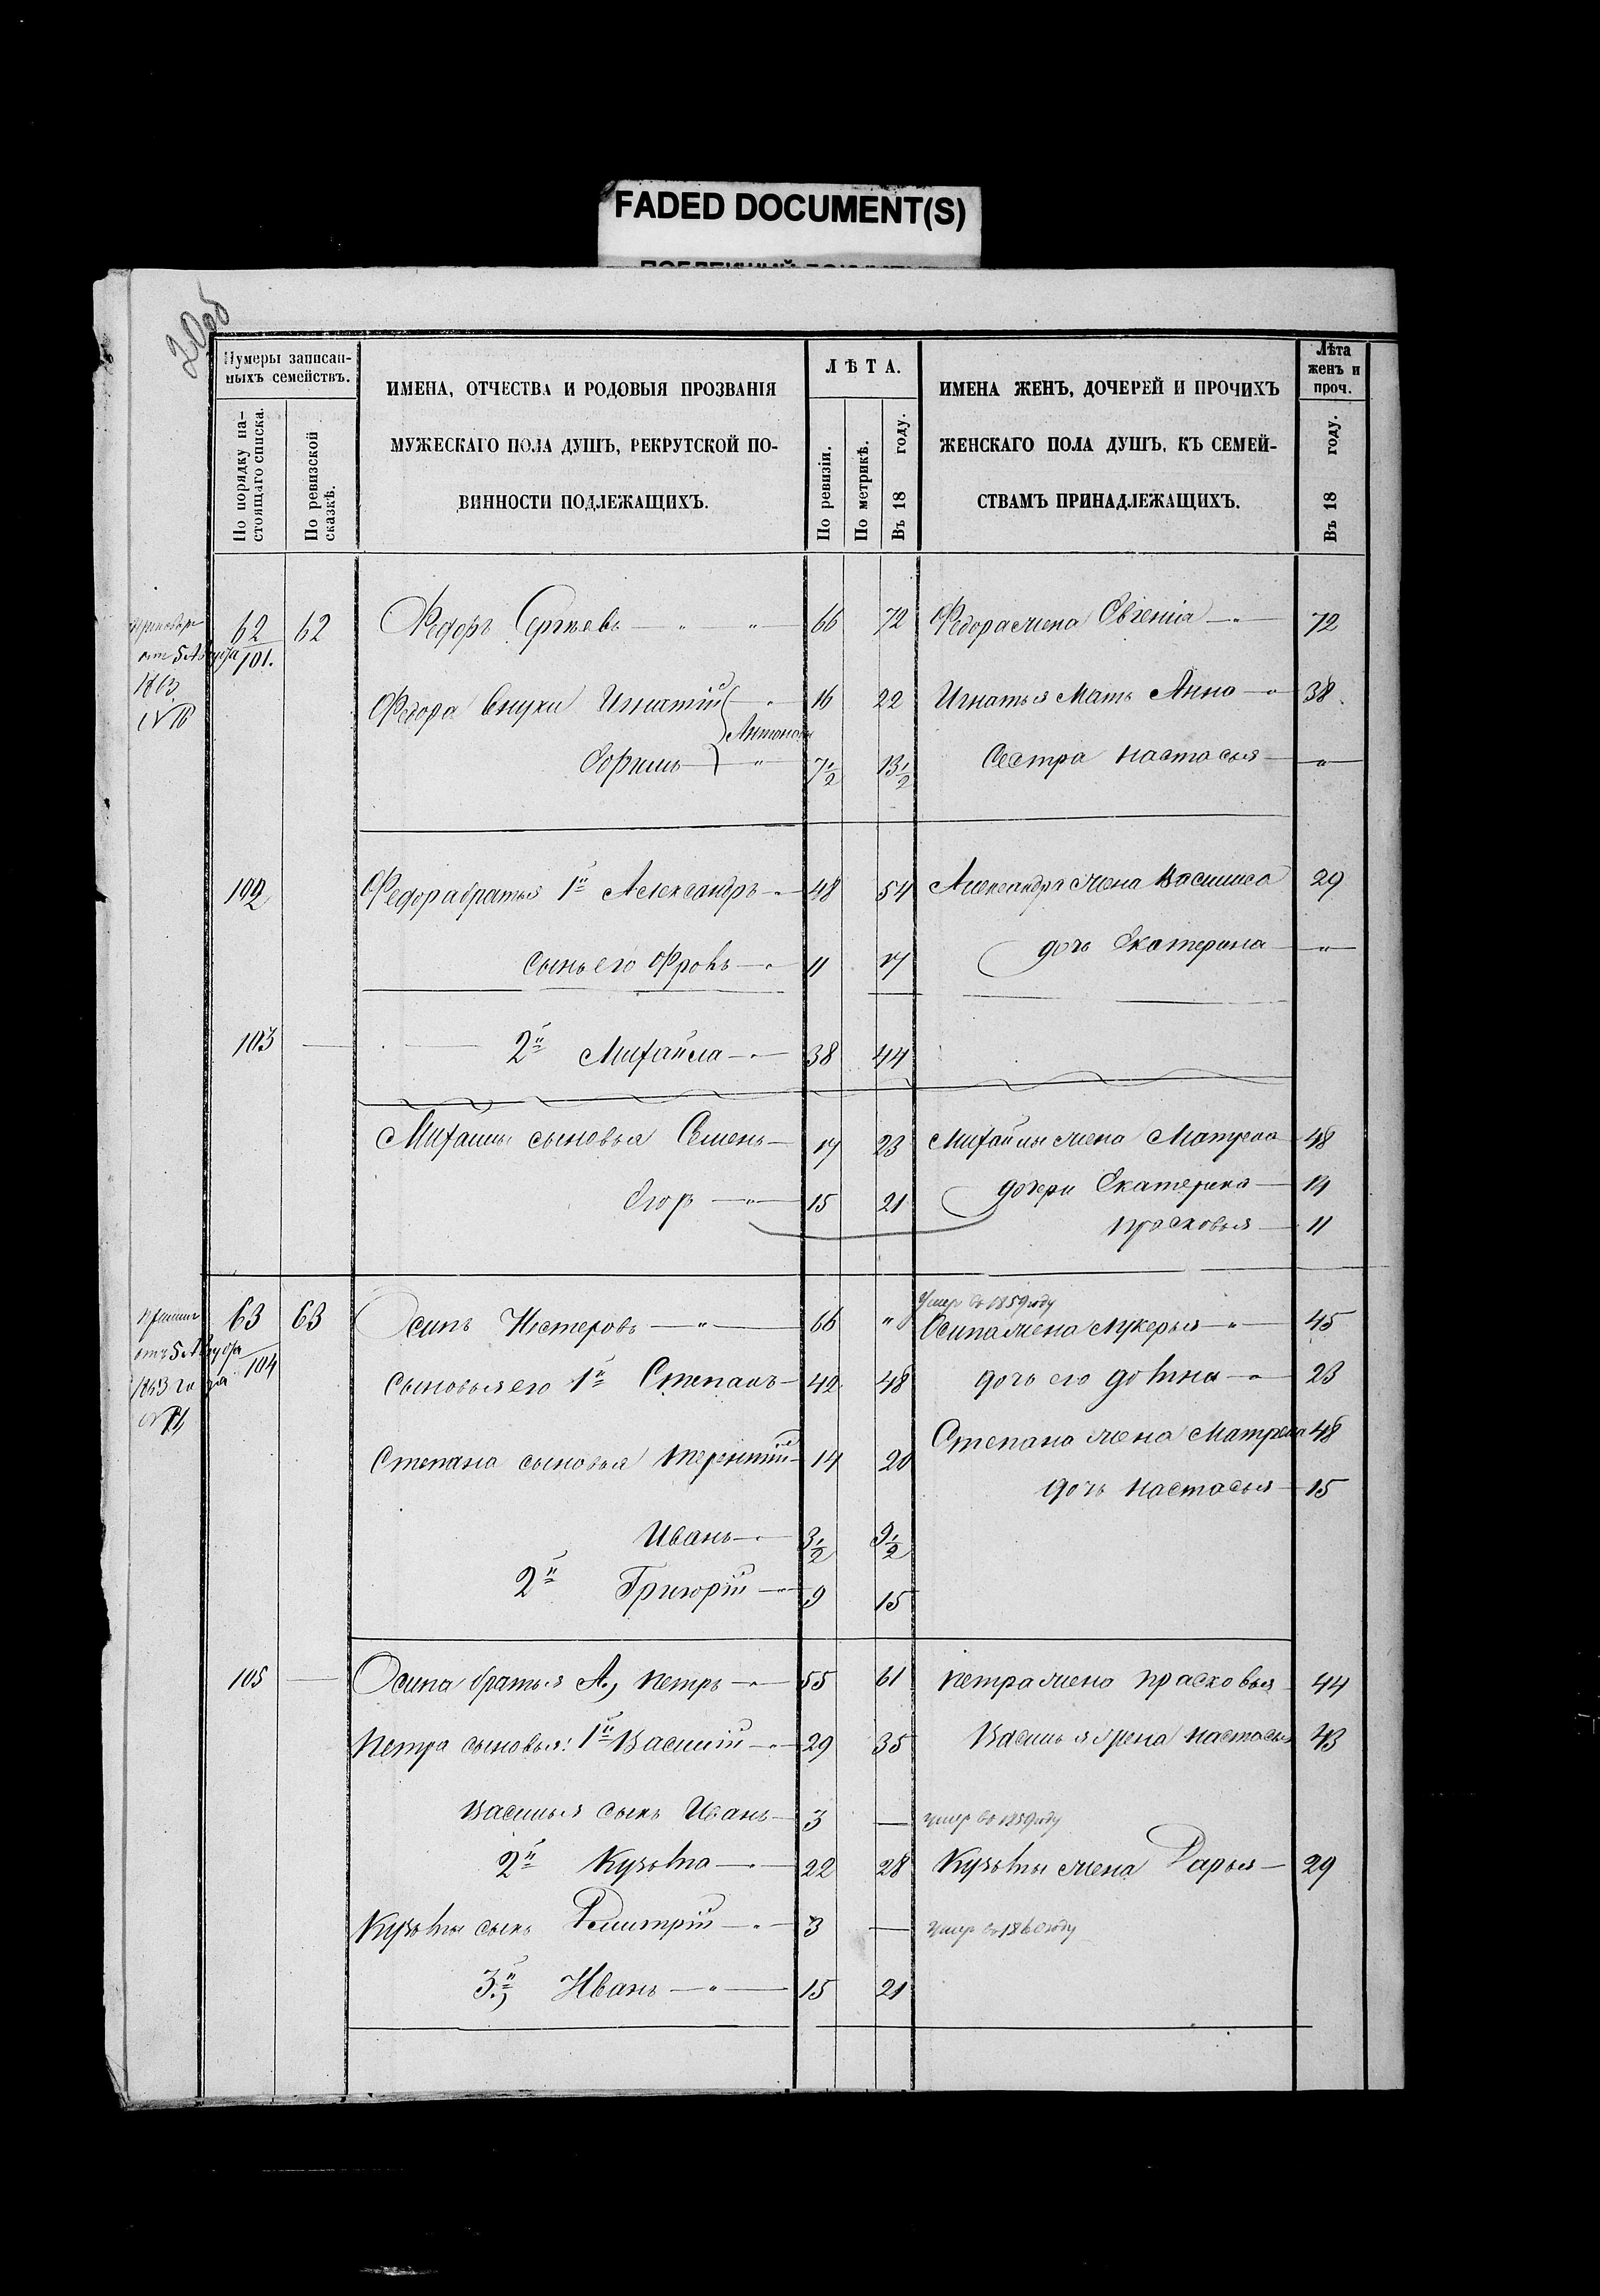 FADED DOCUMENT(S)
20об
Нумеры записан-
ныхъ семействъ.
По порядку на-
стоящаго списка.
По ревизской
сказкѣ.
ИМЕНА, ОТЧЕСТВА И РОДОВЫЯ ПРОЗВАНІЯ
МУЖЕСКАГО ПОЛА ДУШЪ, РЕКРУТСКОЙ ПО-
ВИННОСТИ ПОДЛЕЖАЩИХЪ.
ЛѢТА.
По ревизіи.
По метрикѣ.
Въ 18 году.
ИМЕНА ЖЕНЪ, ДОЧЕРЕЙ И ПРОЧИХЪ
ЖЕНСКАГО ПОЛА ДУШЪ, КЪ СЕМЕЙ-
СТВАМЪ ПРИНАДЛЕЖАЩИХЪ.
Лѣта
женъ и
проч.
Въ 18 году.
от 5 Августа
1863
62 62 Федоръ Сергѣевъ — " — " — 66 72 Федора жена Евгенія — " — 72
101.
Федора внуки Игнатій — " — 16 22 Игнатья Мать Анна — " 38
Антоновы
Ефимъ — " — 7 1/2 13 1/2 Сестра Настасья — " —
102 Федора братья 1й Александръ — " — 48 54 Александра жена Василиса 29
сынъ его Фролъ — " — 11 17 дочь Екатерина — " —
103 — 2й Михайла — " — 38 44
Михайлы сыновья Семенъ — 17 23 Михайлы жена Матрена 48
Егоръ — " — 15 21 дочери Екатерина — 14
Прасковья — 11
Умер въ 1859 году
63 63 Осипъ Нестеровъ — " — 66 " Осипа жена Лукерья — " — 45
отъ 5 Августа
104
1863 года
сыновья его 1й Степанъ — 42 48 дочь его Домна — " — 23
Степана жена Матрена 48
Степана сыновья Терентій — 14 20
дочь Настасья — 15
Иванъ — " — 3 1/2 9 1/2
2й Григорій — " — 9 15
105 — Осипа братья А., Петръ — " — 55 61 Петра жена Прасковья 44
Петра сыновья: 1й Василій — " — 29 35 Василья жена Настасья 43
Василья сынъ Иванъ — 3 — умер въ 1859 году
2й Кузьма — " — 22 28 Кузьмы жена Дарья — 29
Кузьмы сынъ Дмитрій — " — 3 — умер въ 1860 году
3й, Иванъ — " — 15 21